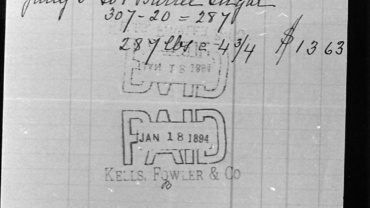 Barrel Sugar
307-20 = 287
287 lbs @ 4 3/4 $13 63
JAN 18 1894
PAID
JAN 18 1894
PAID
KELLS, FOWLER & Co